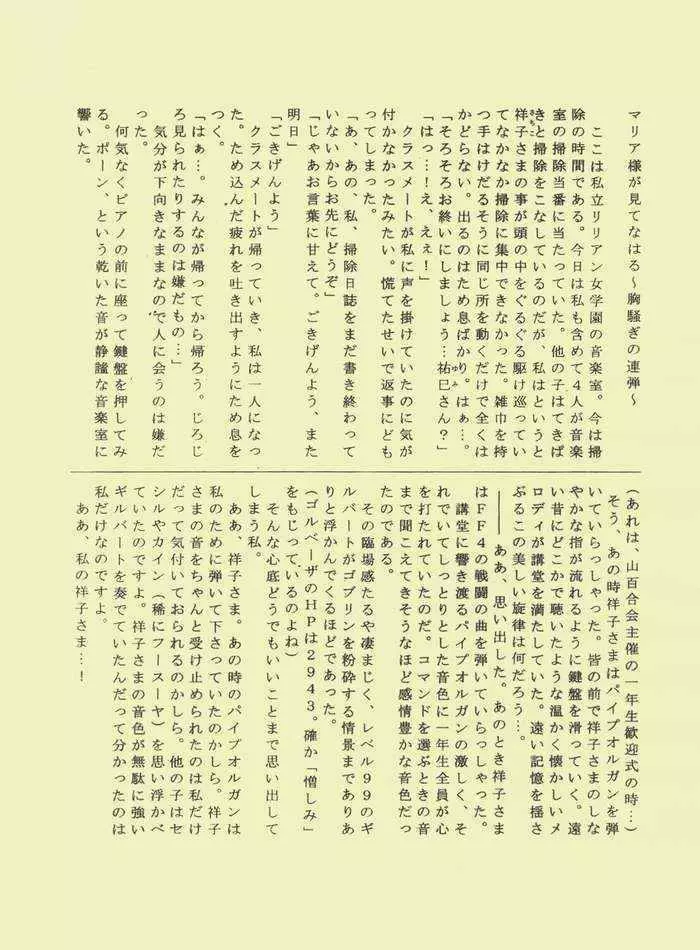 マリア様が見てなはる～胸騒ぎの連弾～
ここは私立リリアン女学園の音楽室。今は掃
除の時間である。今日は私も含めて4人が音楽
室の掃除当番に当たっていた。他の子はてきぱ
きと掃除をこなしているのだが、私はというと
祥子さまの事が頭の中をぐるぐる駆け巡ってい
てなかなか掃除に集中できなかった。雑巾を持
つ手はけだるそうに同じ所を動くだけで全くは
かどらない。出るのはため息ばかり。はぁ…。
「そろそろお終いにしましょう…祐巳さん？」
「はっ…！え、えぇ！」
クラスメートが私に声を掛けていたのに気が
付かなかったみたい。慌てたせいで返事にども
ってしまった。
「あ、あの、私、掃除日誌をまだ書き終わって
いないからお先にどうぞ」
「じゃあお言葉に甘えて。ごきげんよう、また
明日」
「ごきげんよう」
クラスメートが帰っていき、私は一人になっ
た。ため込んだ疲れを吐き出すようにため息を
つく。
「はぁ…。みんなが帰ってから帰ろう。じろじ
ろ見られたりするのは嫌だもの…」
気分が下向きなままなので人に会うのは嫌だ
った。
何気なくピアノの前に座って鍵盤を押してみ
る。ポーン、という乾いた音が静謐な音楽室に
響いた。
（あれは、山百合会主催の一年生歓迎式の時…）
そう、あの時祥子さまはパイプオルガンを弾
いていらっしゃった。皆の前で祥子さまのしな
やかな指が流れるように鍵盤を滑っていく。遠
い昔にどこかで聴いたような温かく懐かしいメ
ロディが講堂を満たしていた。遠い記憶を揺さ
ぶるこの美しい旋律は何だろう…。
――ああ、思い出した。あのとき祥子さま
はFF4の戦闘の曲を弾いていらっしゃった。
講堂に響き渡るパイプオルガンの激しく、そ
れでいてしっとりとした音色に一年生全員が心
を打たれていたのだ。コマンドを選ぶときの音
まで聞こえてきそうなほど感情豊かな音色だっ
たのである。
その臨場感たるや凄まじく、レベル99のギ
ルバートがゴブリンを粉砕する情景までありあ
りと浮かんでくるほどであった。
（ゴルベーザのHPは2943。確か「憎しみ」
をもじっているのよね）
そんな心底どうでもいいことまで思い出して
しまう私。
ああ、祥子さま。あの時のパイプオルガンは
私のために弾いて下さっていたのかしら。祥子
さまの音をちゃんと受け止められたのは私だけ
だって気付いておられるのかしら。他の子はセ
シルやカイン（稀にフースーヤ）を思い浮かべ
ていたのですよ。祥子さまの音色が無駄に強い
ギルバートを奏でていたんだって分かったのは
私だけなのですよ。
ああ、私の祥子さま…！